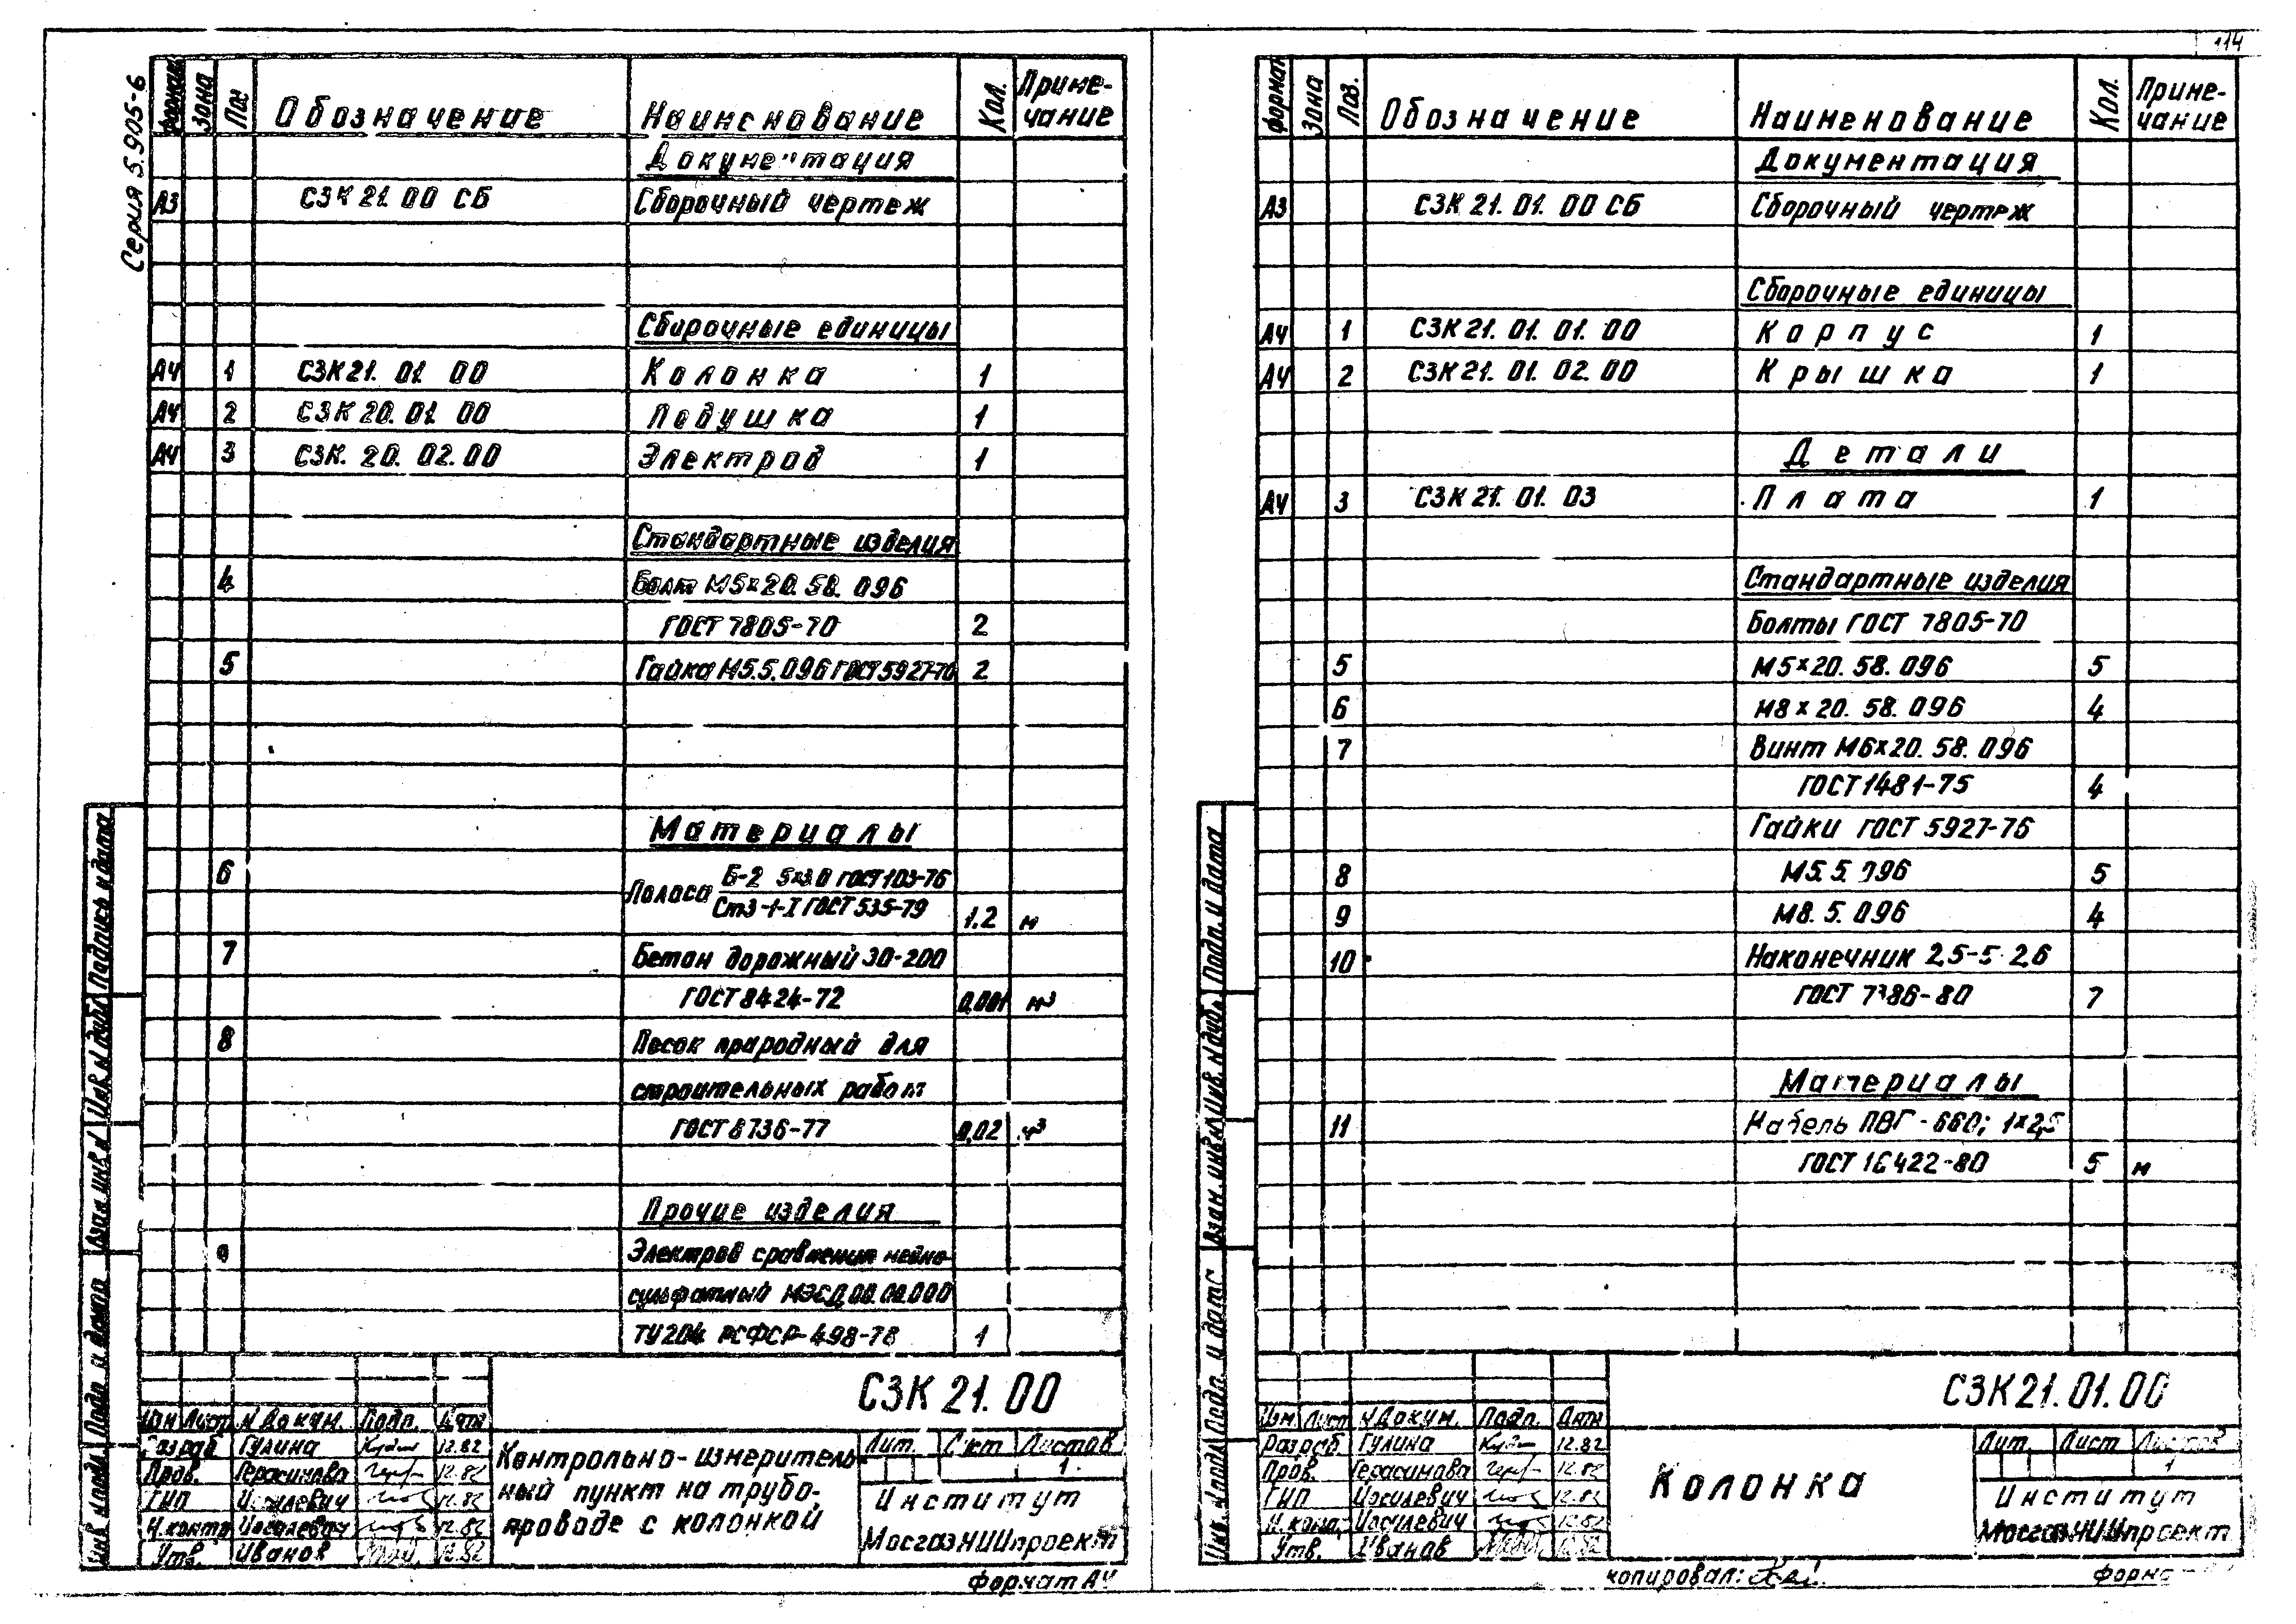 114
Серия 5.905-6
Формат Зона Поз. Обозначение Наименование Кол. Приме-
чание
Документация
А3 СЗК 21. 00 СБ Сборочный чертеж
Сборочные единицы
А4 1 СЗК 21. 01. 00 Колонка 1
А4 2 СЗК 20. 01. 00 Подушка 1
А4 3 СЗК. 20. 02. 00 Электрод 1
Стандартные изделия
4 Болт М5×20. 58. 096
ГОСТ 7805-70 2
5 Гайка М5.5.096 ГОСТ 5927-70 2
Материалы
6 Полоса Б-2 5×30 ГОСТ 103-76
Ст3-1-I ГОСТ 535-79 1.2 м
7 Бетон дорожный 30-200
ГОСТ 8424-72 0,001 м³
8 Песок природный для
строительных работ
ГОСТ 8736-77 0,02 м³
Прочие изделия
9 Электрод сравнения медно-
сульфатный МЭСД 00.00.000
ТУ 204 РСФСР-498-78 1
СЗК 21. 00
Изм Лист N Докум. Подп. Дата
Разраб Гулина 12.82
Пров. Герасимова 12.82
ГИП Иоселевич 12.82
Н.контр Иоселевич 12.82
Утв. Иванов 12.82
Контрольно-измеритель-
ный пункт на трубо-
проводе с колонкой
Лит. Лист Листов
1
Институт
МосгазНИИпроект
Формат А4
Инв. N подл. Подп. и дата Взам. инв. N Инв. N дубл. Подпись и дата
Формат Зона Поз. Обозначение Наименование Кол. Приме-
чание
Документация
А3 СЗК 21. 01. 00 СБ Сборочный чертеж
Сборочные единицы
А4 1 СЗК 21. 01. 01. 00 Корпус 1
А4 2 СЗК 21. 01. 02. 00 Крышка 1
Детали
А4 3 СЗК 21. 01. 03 Плата 1
Стандартные изделия
Болты ГОСТ 7805-70
5 М5×20. 58. 096 5
6 М8×20. 58. 096 4
7 Винт М6×20. 58. 096
ГОСТ 1481-75 4
Гайки ГОСТ 5927-76
8 М5. 5. 096 5
9 М8. 5. 096 4
10 Наконечник 2,5-5 2,6
ГОСТ 7386-80 7
Материалы
11 Кабель ПВГ-660; 1×2,5
ГОСТ 16422-80 5 м
СЗК 21. 01. 00
Изм Лист N Докум. Подп. Дата
Разраб Гулина 12.82
Пров. Герасимова 12.82
ГИП Иоселевич 12.82
Н.конт. Иоселевич 12.82
Утв. Иванов 12.82
Колонка
Лит. Лист Листов
1
Институт
МосгазНИИпроект
Копировал:
Форма
Инв. N подл Подп. и дата Взам. инв. N Инв. N дубл. Подп. и дата